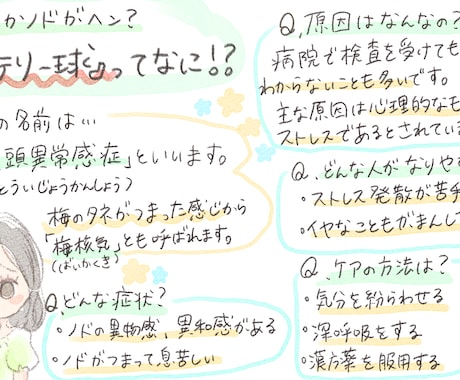 かノドがヘン?
テリー球」ってなに!?
の名前は…
頭異常感症」といいます。
とういじょうかんしょう)
梅のタネがつまった感じから
「梅核気」とも呼ばれます。
(ばいかくき)
Q,どんな症状?
・ノドの異物感、異和感がある
・ノドがつまって息苦しい
Q,原因はなんなの?
病院で検査を受けても
わからないことも多いです。
主な原因は心理的なも
ストレスであるとされている
Q,どんな人がなりや
・ストレス発散が苦手
・イヤなこともがまんして
Q,ケアの方法は?
・気分を紛らわせる
・深呼吸をする
・漢方薬を服用する